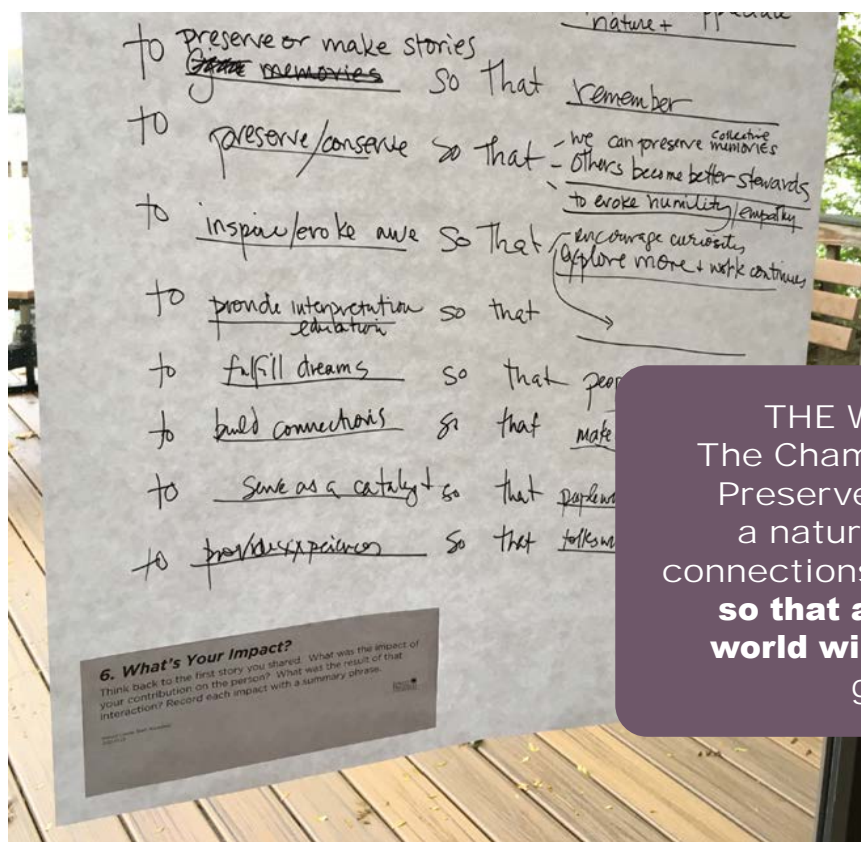 nature +
to preserve or make stories
memories so that remember
to preserve/conserve so that - we can preserve collective memories
- others become better stewards
to evoke humility/empathy
to inspire/evoke awe so that - encourage curiosity
explore more + work continues
to provide interpretation so that
education
to fulfill dreams so that
to build connections so that make
to serve as a catalyst so that
to provide experiences so that
THE
The
Preserve
a
connections
so that
world
6. What's Your Impact?
Think back to the first story you shared. What was the impact of
your contribution on the person? What was the result of that
interaction? Record each impact with a summary phrase.